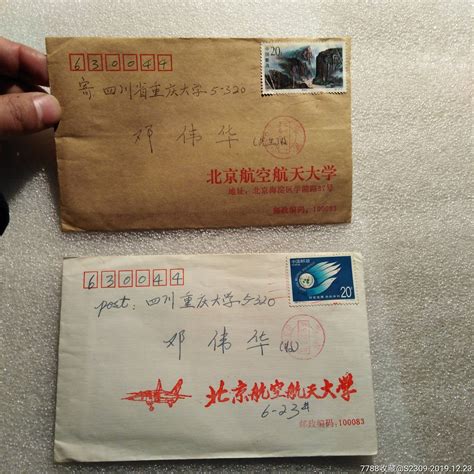 630044
20
寄 四川省重庆大学5-320
邓伟华
北京航空航天大学
地址:北京海淀区学院路37号
邮政编码:100083
630044
中国邮政
20分
post: 四川重庆大学5-320
邓伟华
北京航空航天大学
6-23#
邮政编码:100083
7788收藏@S2309-2019.12.28